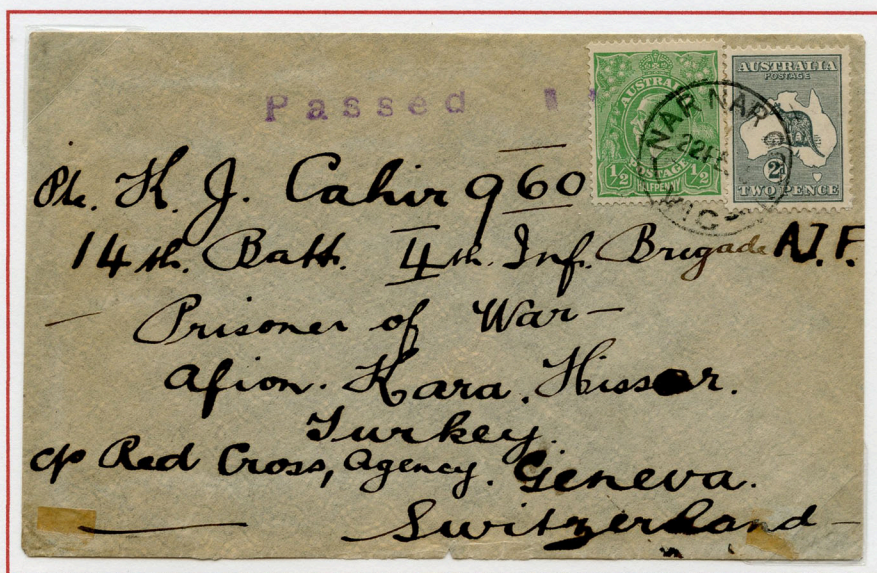 Passed
AUSTRALIA
POSTAGE
½ ½
HALFPENNY
AUSTRALIA
POSTAGE
2d
TWO PENCE
NAR NAR
22
VIC
Pte. K. J. Cahir 960
14th. Batt. 4th. Inf. Brigade A.I.F.
— Prisoner of War —
Afion. Kara. Hissar.
Turkey.
c/o Red Cross, Agency. Geneva.
Switzerland —